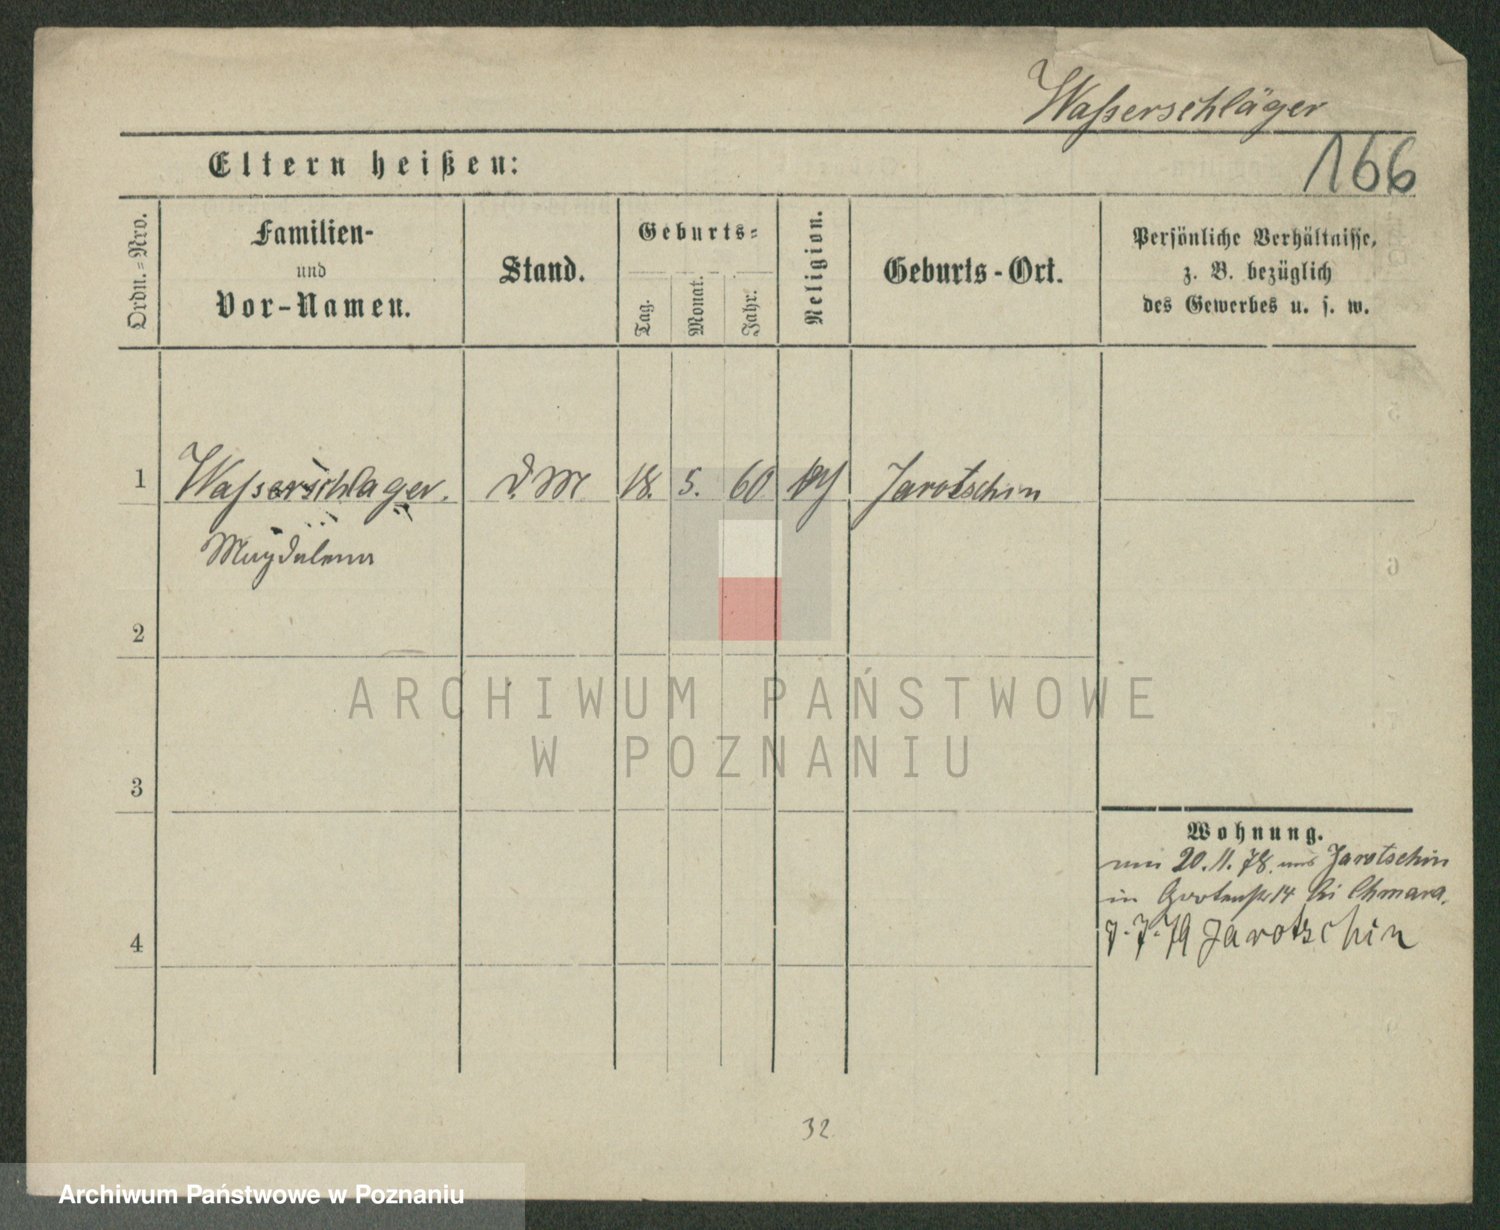 Waßerschläger
166
Eltern heißen:
Ordn.=Nro.
Familien-
und
Vor-Namen.
Stand.
Geburts=
Tag.
Monat.
Jahr.
Religion.
Geburts-Ort.
Persönliche Verhältnisse,
z. B. bezüglich
des Gewerbes u. s. w.
1
Waßerschlager.
D. M
18.
5.
60
Jarotschin
Magdalena
2
3
4
ARCHIWUM PAŃSTWOWE
W POZNANIU
Wohnung.
20.11.78. aus Jarotschin
in Gartenstr 14 bei Chmara.
7.7.79 Jarotschin
32
Archiwum Państwowe w Poznaniu